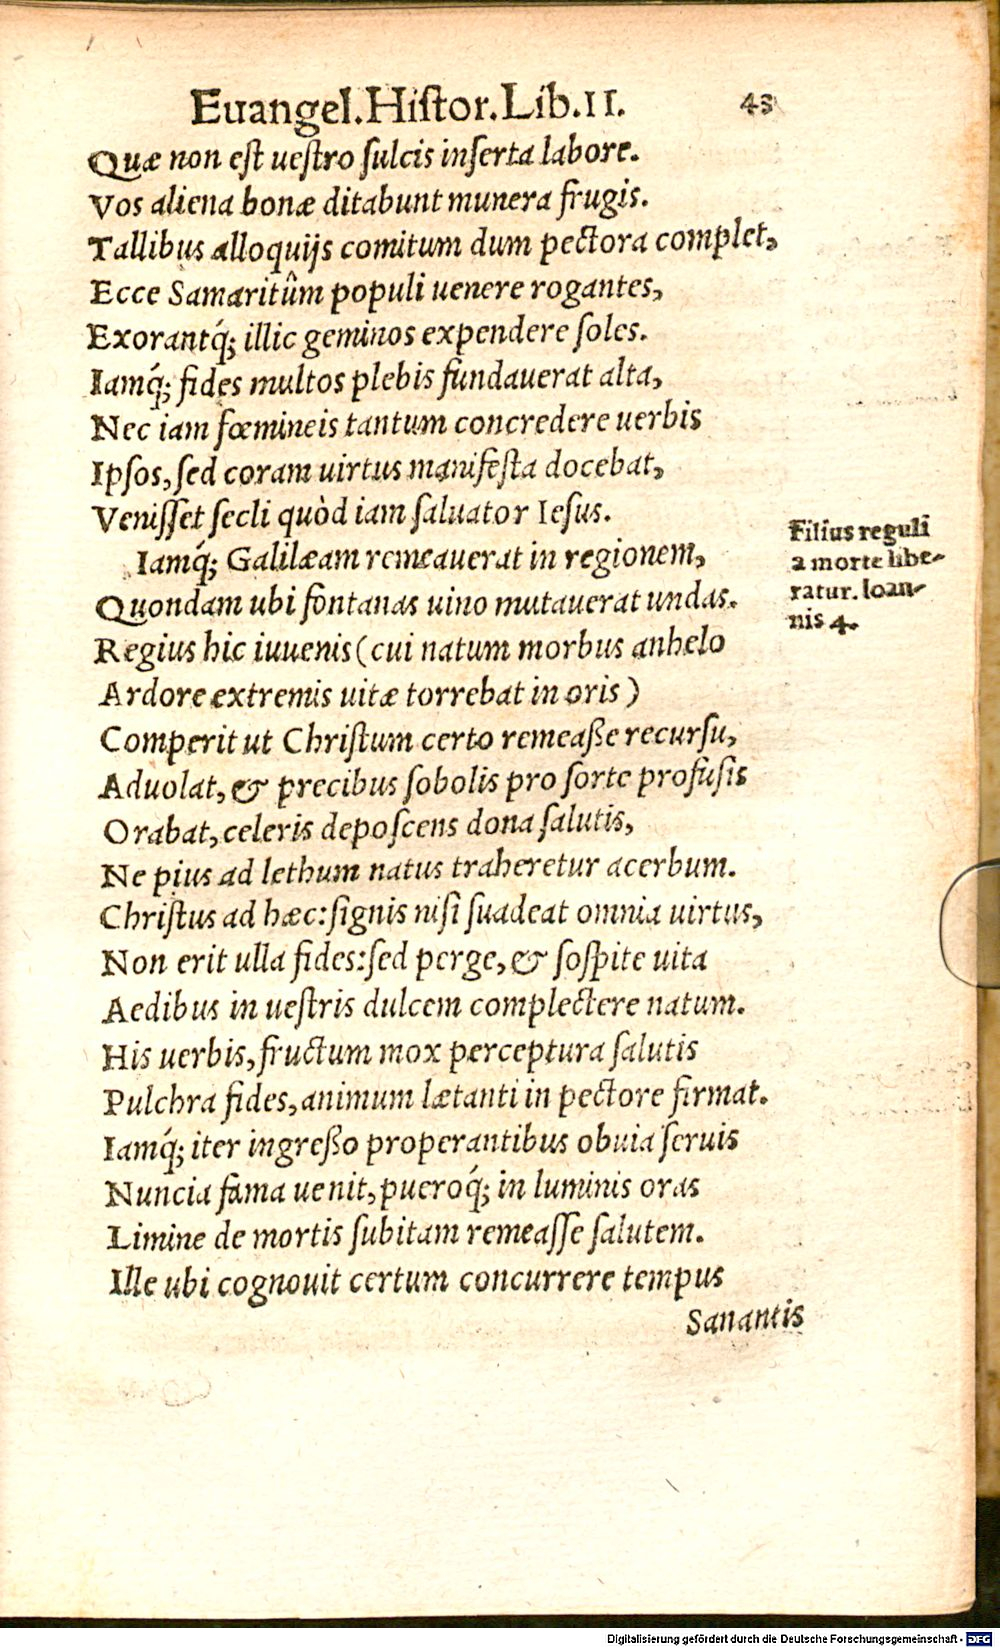 Euangel.Histor.Lib.II. 43
Quæ non est uestro sulcis inserta labore.
Vos aliena bonæ ditabunt munera frugis.
Tallibus alloquijs comitum dum pectora complet,
Ecce Samaritûm populi uenere rogantes,
Exorantq́; illic geminos expendere soles.
Iamq́; fides multos plebis fundauerat alta,
Nec iam fœmineis tantum concredere uerbis
Ipsos, sed coram uirtus manifesta docebat,
Venisset secli quòd iam saluator Iesus.
Iamq́; Galilæam remeauerat in regionem,
Quondam ubi fontanas uino mutauerat undas.
Regius hic iuuenis (cui natum morbus anhelo
Ardore extremis uitæ torrebat in oris)
Comperit ut Christum certo remeaße recursu,
Aduolat, & precibus sobolis pro sorte profusis
Orabat, celeris deposcens dona salutis,
Ne pius ad lethum natus traheretur acerbum.
Christus ad hæc: signis nisi suadeat omnia uirtus,
Non erit ulla fides: sed perge, & sospite uita
Aedibus in uestris dulcem complectere natum.
His uerbis, fructum mox perceptura salutis
Pulchra fides, animum lætanti in pectore firmat.
Iamq́; iter ingreßo properantibus obuia seruis
Nuncia fama uenit, pueroq́; in luminis oras
Limine de mortis subitam remeasse salutem.
Ille ubi cognouit certum concurrere tempus
Sanantis
Filius reguli
a morte libe-
ratur. Ioan-
nis 4.
Digitalisierung gefördert durch die Deutsche Forschungsgemeinschaft - DFG